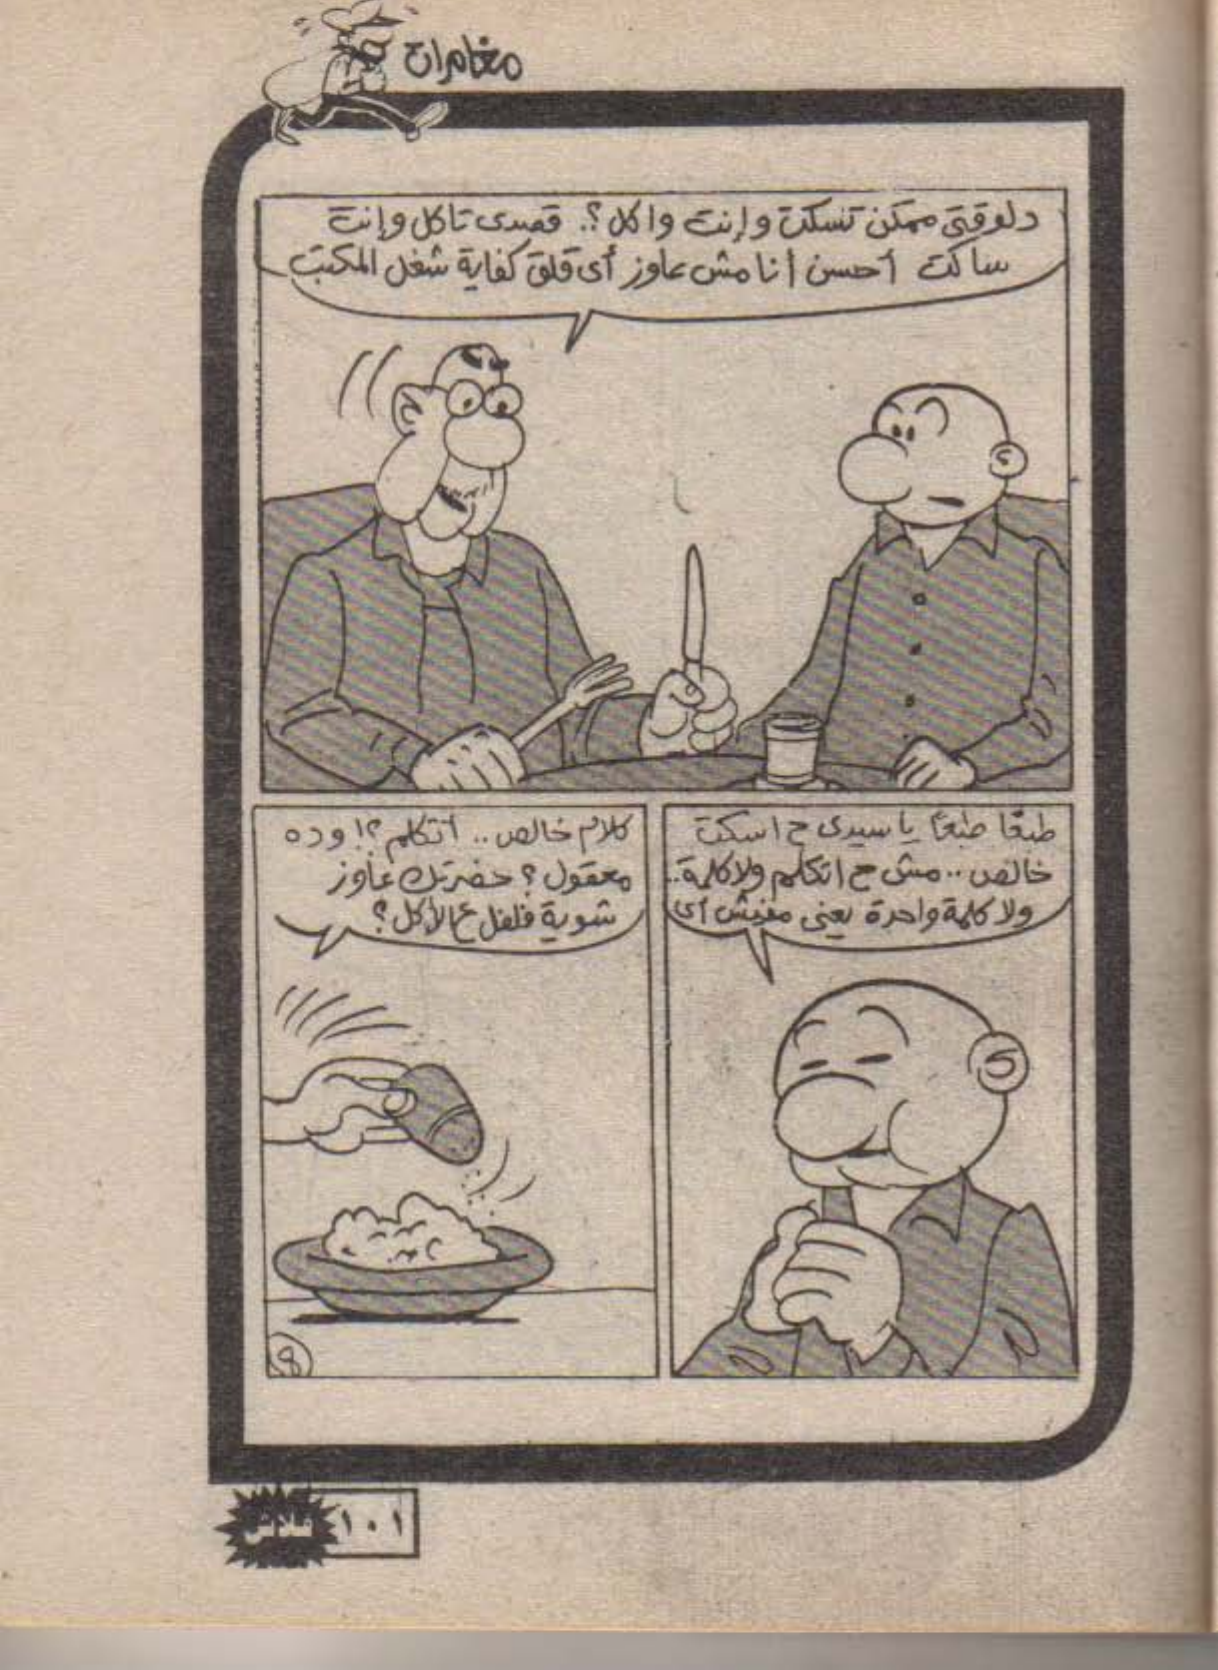 مغامرات
دلوقتى ممكن تسكت وإنت واكل؟. قصدى تاكل وإنت
ساكت أحسن أنا مش عاوز أى قلق كفاية شغل المكتب
طبعًا طبعًا يا سيدى ح اسكت
خالص.. مش ح اتكلم ولا كلمة..
ولا كلمة واحدة يعنى مفيش أى
كلام خالص.. أتكلم؟! وده
معقول؟ حضرتك عاوز
شوية فلفل ع الأكل؟
8
فلاش
١٠١